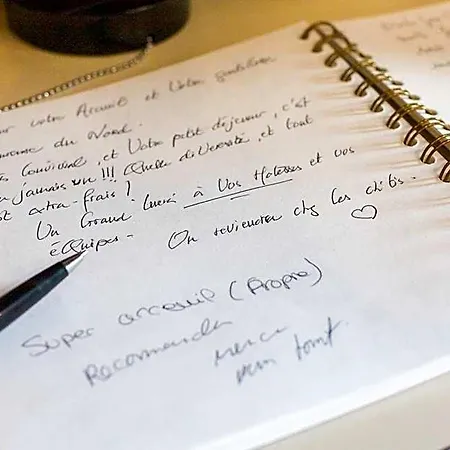 votre Accueil et Votre gentillesse
du Nord.
Convivial, et Votre petit déjeuner, c'est
jamais vu !!! Quelle diversité, et tout
est extra-frais !
Un Grand merci à Vos Hotesses et vos
équipes - On reviendra chez les ch'tis. ♡
Super acceuil (Propre)
Recommander
Merci
pour tout.